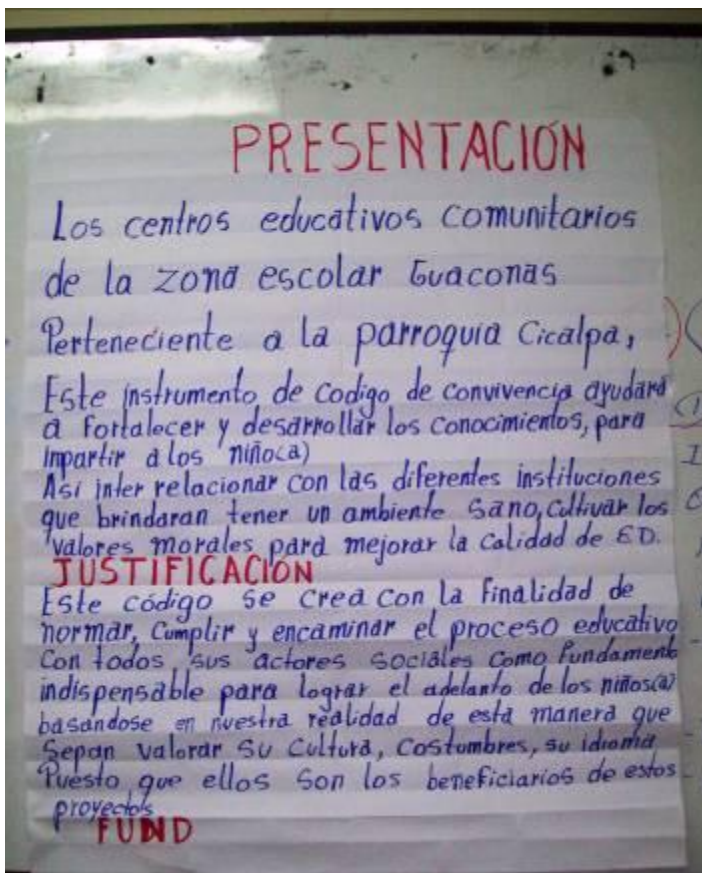 PRESENTACIÓN
Los centros educativos comunitarios
de la zona escolar Guaconas
Perteneciente a la parroquia Cicalpa,
Este instrumento de Codigo de convivencia ayudará
a fortalecer y desarrollar los conocimientos, para
impartir a los niño(a)
Así inter relacionar con las diferentes instituciones
que brindaran tener un ambiente sano, cultivar los
valores morales para mejorar la calidad de ED.
JUSTIFICACIÓN
Este código se crea con la finalidad de
normar, cumplir y encaminar el proceso educativo
con todos sus actores sociales como fundamento
indispensable para lograr el adelanto de los niños(a)
basandose en nuestra realidad de esta manera que
sepan valorar su cultura, costumbres, su idioma
Puesto que ellos son los beneficiarios de estos
proyectos
FUND